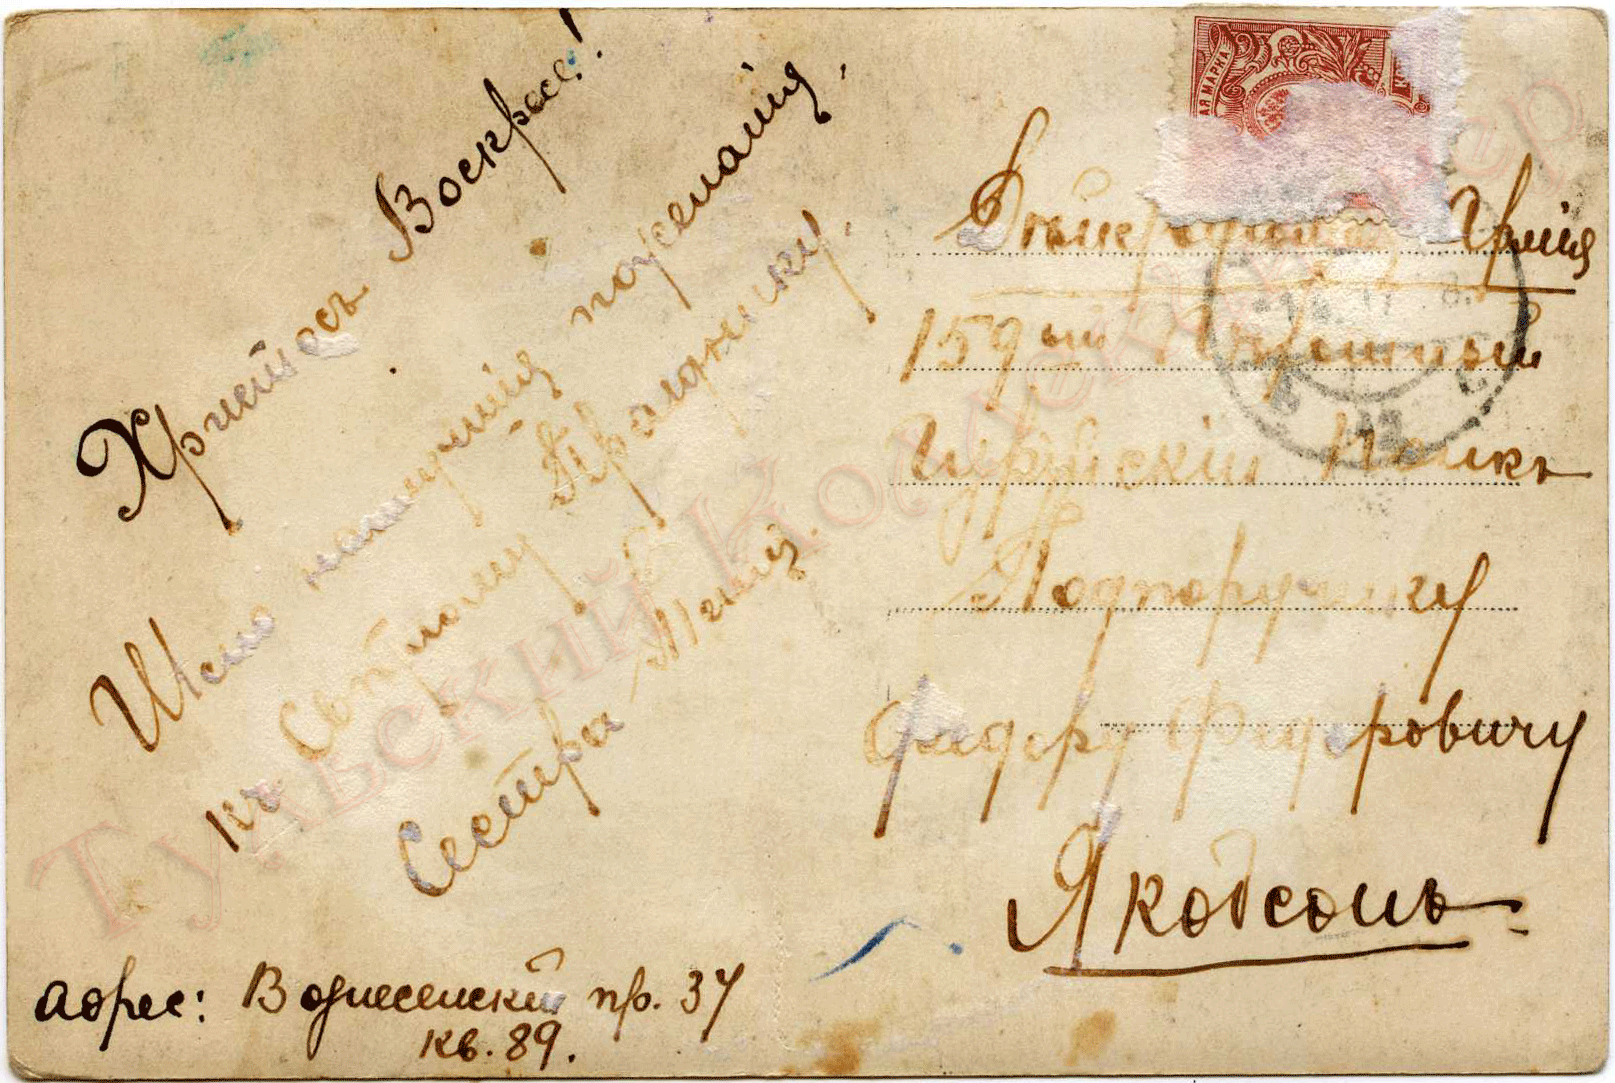 Христосъ Воскресе!
Шлю наилучшія пожеланія
къ Свѣтлому Празднику.
Сестра
адрес: Вознесенскій пр. 37
кв. 89.
АЯ МАРКА
Дѣйствующая Армія
159ый Пѣхотный
Гурійскій Полкъ
Подпоручику
Федору Федоровичу
Якобсонъ
Тульский Коллекционер